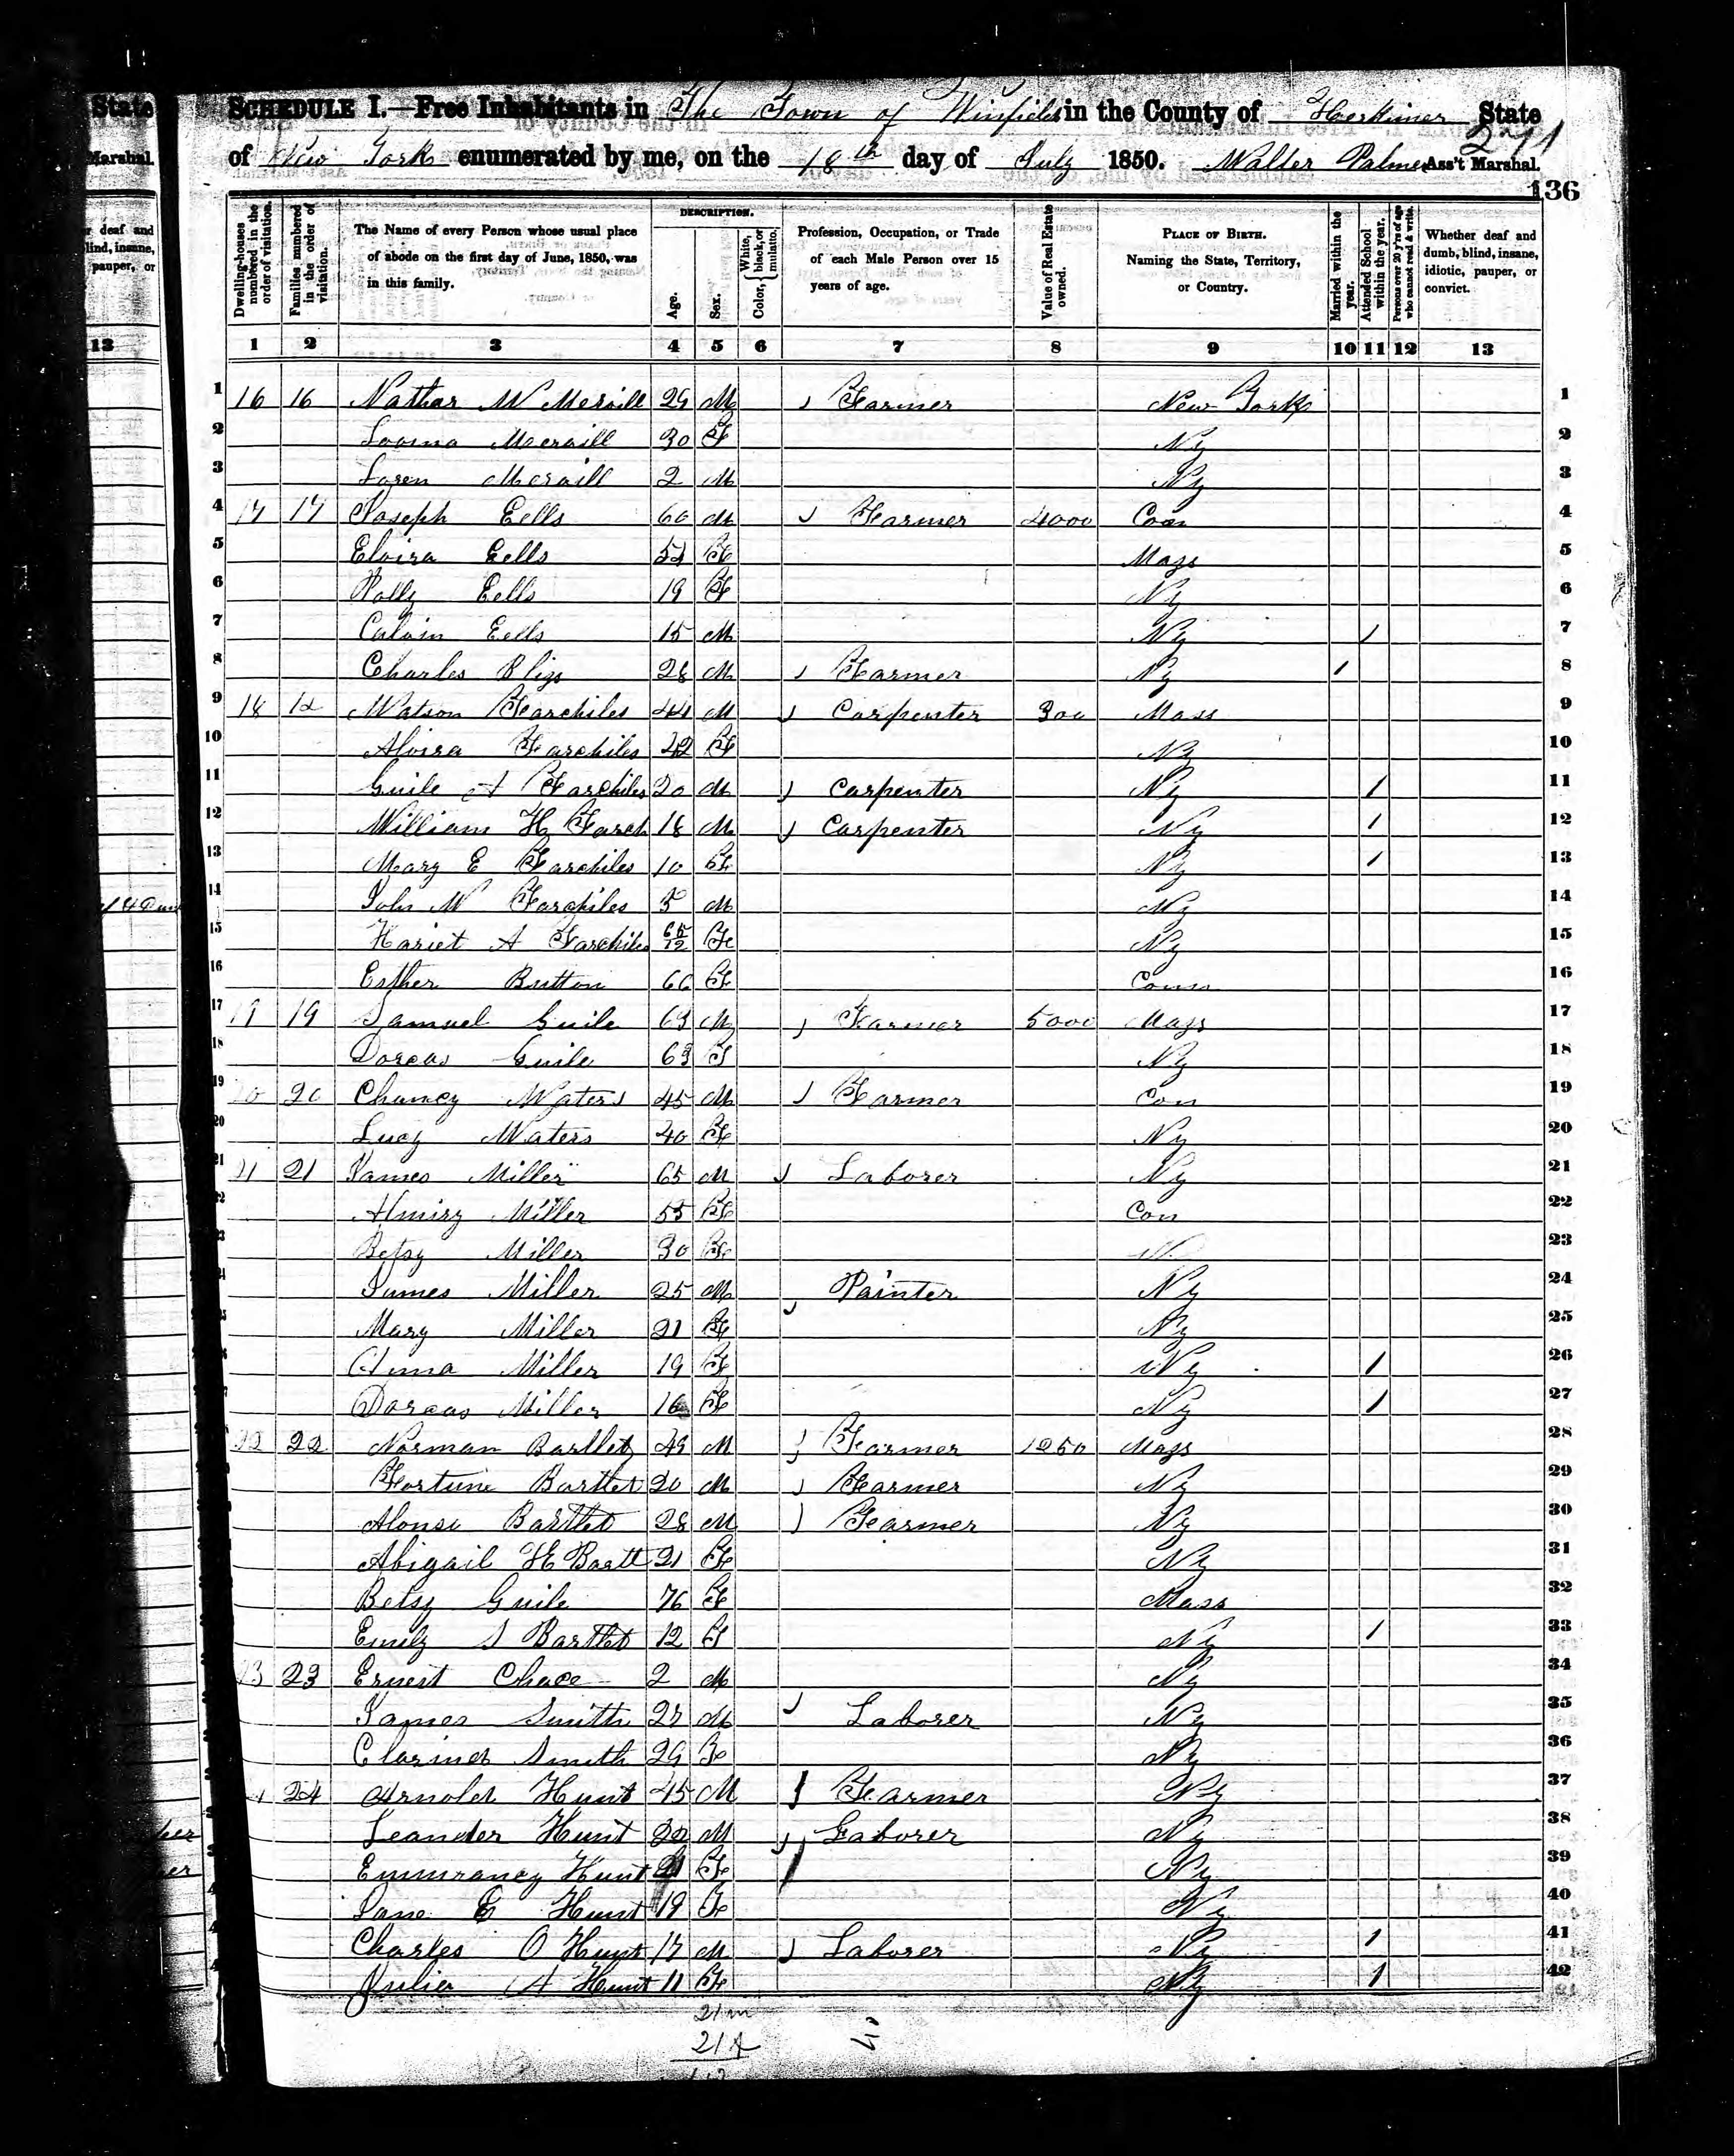 State
SCHEDULE I.—Free Inhabitants in The Town of Winfield in the County of Herkimer State
271
Marshal.
of New York enumerated by me, on the 18th day of July 1850. Walter Palmer Ass't Marshal.
136
Dwelling-houses numbered in the order of visitation.
Families numbered in the order of visitation.
The Name of every Person whose usual place of abode on the first day of June, 1850, was in this family.
DESCRIPTION.
Age.
Sex.
Color, { White, black, or mulatto.
Profession, Occupation, or Trade of each Male Person over 15 years of age.
Value of Real Estate owned.
PLACE OF BIRTH. Naming the State, Territory, or Country.
Married within the year.
Attended School within the year.
Persons over 20 y'rs of age who cannot read & write.
Whether deaf and dumb, blind, insane, idiotic, pauper, or convict.
13 1 2 3 4 5 6 7 8 9 10 11 12 13
1 16 16 Nathan W Merrill 29 M Farmer New York 1
2 Merrill 30 F Ny 2
3 Loren Merrill 2 M Ny 3
4 17 17 Joseph Eells 60 M Farmer 4000 Con 4
5 Elvira Eells F Mass 5
6 Polly Eells 19 F Ny 6
7 Calvin Eells 15 M Ny / 7
8 Charles Bliss 28 M Farmer Ny / 8
9 18 Watson Farchiles 44 M Carpenter 300 Mass 9
10 Alvira Farchiles 42 F Ny 10
11 Guile A Farchiles 20 M Carpenter Ny / 11
12 William H Farch 18 M Carpenter Ny / 12
13 Mary E Farchiles 10 F Ny / 13
14 John W Farchiles 5 M Ny 14
15 Hariet A Farchiles F Ny 15
16 Esther Button 66 F Conn 16
17 19 19 Samuel Guile 63 M Farmer 5000 Mass 17
18 Dorcas Guile 63 F Ny 18
19 20 20 Chancy Waters 45 M Farmer Con 19
20 Lucy Waters 40 F Ny 20
21 21 21 James Miller 65 M Laborer Ny 21
22 Almiry Miller 55 F Con 22
23 Betsy Miller 30 F N 23
24 James Miller 25 M Painter Ny 24
25 Mary Miller 21 F Ny 25
26 Anna Miller 19 F Ny / 26
27 Dorcas Miller 16 F Ny / 27
22 22 Norman Bartlet 49 M Farmer 1250 Mass 28
Fortune Bartlet 20 M Farmer Ny 29
Alonso Bartlet 28 M Farmer Ny 30
Abigail H Bartt 21 F Ny 31
Betsy Guile 76 F Mass 32
Emily S Bartlet 12 F Ny / 33
23 23 Ernest Chace 2 M Ny 34
James Smith 27 M Laborer Ny 35
Smith 29 F Ny 36
24 Arnold Hunt 45 M Farmer Ny 37
Leander Hunt 22 M Laborer Ny 38
Emmrancy Hunt F Ny 39
Jane E Hunt 19 F Ny 40
Charles O Hunt 17 M Laborer Ny / 41
Julia A Hunt 11 F Ny / 42
21 m
21 f